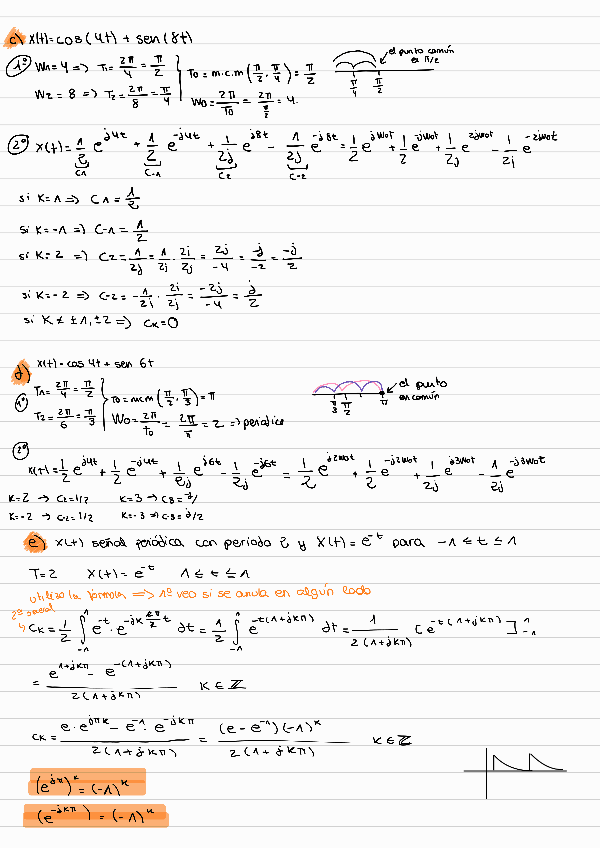 c) X(t)=cos(4t) + sen(8t)
1º W1=4 => T1= 2π/4 = π/2
W2=8 => T2= 2π/8 = π/4
T0=m.c.m(π/2, π/4)= π/2
W0= 2π/T0 = 2π/(π/2) = 4.
el punto común es π/2
π/4 π/2
2º X(t)= 1/2 e^{j4t} + 1/2 e^{-j4t} + 1/2j e^{j8t} - 1/2j e^{-j8t} = 1/2 e^{jW0t} + 1/2 e^{-jW0t} + 1/2j e^{2jW0t} - 1/2j e^{-2jW0t}
C1 C-1 C2 C-2
si K=1 => C1= 1/2
si K=-1 => C-1= 1/2
si K=2 => C2= 1/2j = 1/2j · 2j/2j = 2j/-4 = j/-2 = -j/2
si K=-2 => C-2= -1/2j · 2j/2j = -2j/-4 = j/2
si K≠±1,±2 => CK=0
d) X(t)=cos 4t + sen 6t
1º T1= 2π/4 = π/2
T2= 2π/6 = π/3
T0=mcm(π/2, π/3)=π
W0= 2π/t0 = 2π/π = 2 => periódica
el punto en común
π/3 π/2 π
2º
X(t)= 1/2 e^{j4t} + 1/2 e^{-j4t} + 1/2j e^{j6t} - 1/2j e^{-j6t} = 1/2 e^{j2W0t} + 1/2 e^{-j2W0t} + 1/2j e^{j3W0t} - 1/2j e^{-j3W0t}
K=2 → C2=1/2 K=3 → C3=
K=-2 → C-2=1/2 K=-3 => C-3=j/2
e) X(t) señal periódica con período 2 y X(t)=e^{-t} para -1≤t≤1
T=2 X(t)=e^{-t} 1≤t≤1
utilizo la fórmula => 1º veo si se anula en algún lado
CK= 1/2 ∫_{-1}^{1} e^{-t} · e^{-jK 2π/2 t} dt = 1/2 ∫_{-1}^{1} e^{-t(1+jKπ)} dt = 1/2(1+jKπ) [e^{-t(1+jKπ)}]_{-1}^{1}
= (e^{1+jKπ} - e^{-(1+jKπ)}) / 2(1+jKπ) K∈ℤ
CK= (e·e^{jπK} - e^{-1}·e^{-jKπ}) / 2(1+jKπ) = (e-e^{-1})(-1)^K / 2(1+jKπ) K∈ℤ
(e^{jπ})^K = (-1)^K
(e^{-jKπ}) = (-1)^K